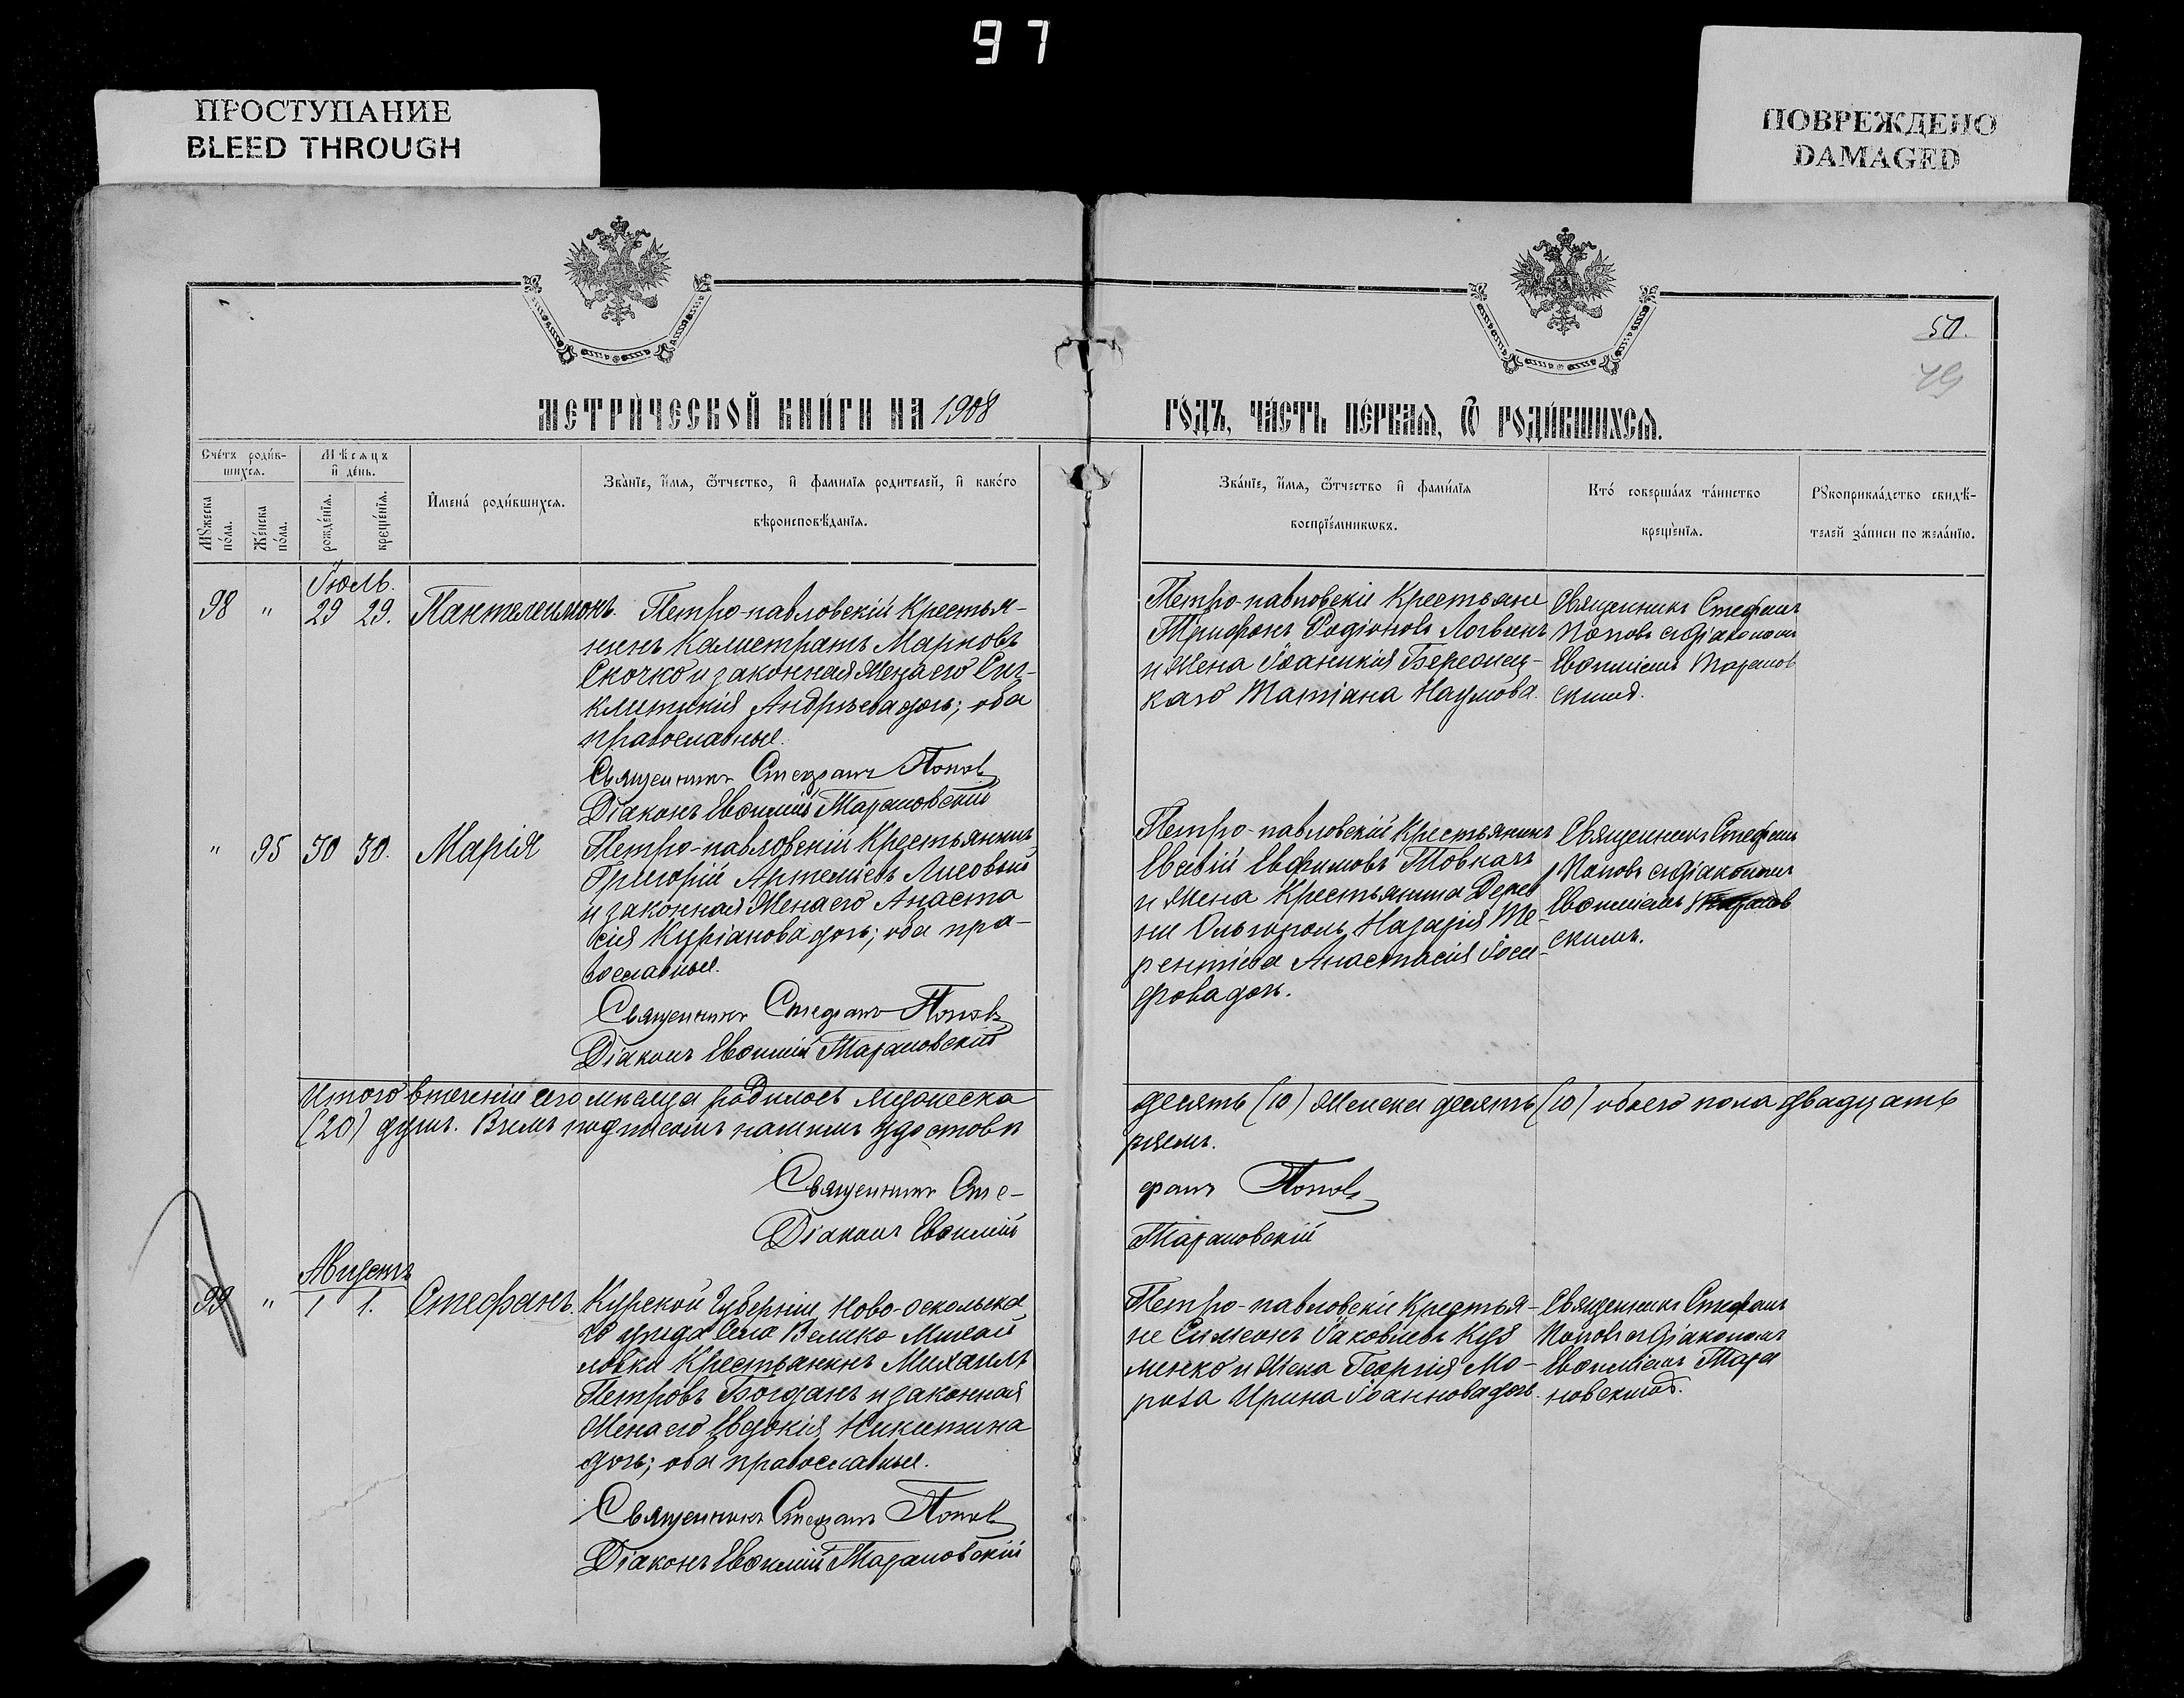 97
ПРОСТУПАНИЕ
BLEED THROUGH
ПОВРЕЖДЕНО
DAMAGED
50.
49
МЕТРИЧЕСКОЙ КНИГИ НА 1908
ГОДЪ, ЧАСТЬ ПЕРВАЯ, Ѡ РОДИВШИХСЯ.
Счетъ родив-
шихся.
Мѣсяцъ
и день.
Мужеска
пола.
Женска
пола.
рожденїя.
крещенїя.
Имена родившихся.
Званїе, имя, ѿчество, и фамилїя родителей, и какого
вѣроисповѣданїя.
Званїе, имя, ѿчество и фамилїя
воспрїемниковъ.
Кто совершалъ таинство
крещенїя.
Рукоприкладство свидѣ-
телей записи по желанїю.
Іюль.
98 " 29 29. Пантелеимонъ.
Петро-павловскій Крестья-
нинъ Калистратъ Марковъ
Скочко и законная жена его Син-
клитикія Андреева дочь; оба
православные.
Священникъ Стефанъ Поповъ
Діаконъ Евѳимій Тарановскій
Петро-павловскіе Крестьяне
Трифонъ Родіоновъ Логвинъ
и жена Іоаникія Бережец-
каго Татіана Наумова.
Священникъ Стефанъ
Поповъ съ діакономъ
Евѳиміемъ Таранов
скимъ.
" 95 30 30. Марія
Петро-павловскій Крестьянинъ
Григорій Артеміевъ Лисовый
и законная жена его Анаста
сія Купріанова дочь; оба пра-
вославные.
Священникъ Стефанъ Поповъ
Діаконъ Евѳимій Тарановскій
Петро-павловскій Крестьянинъ
Евсевій Евфимовъ Товкачъ
и жена Крестьянина Дерев
ни Ольгополь Назарія Те-
рентіева Анастасія Іоси-
фова дочь.
Священникъ Стефанъ
Поповъ съ діакономъ
Евѳиміемъ Таранов
скимъ.
Итого втеченіи сего мѣсяца родилось мужеска
десять (10) женска десять (10) обоего пола двадцать
(20) душъ. Въ чемъ подписомъ нашимъ удостовѣ
ряемъ.
Священникъ Сте-
фанъ Поповъ
Діаконъ Евѳимій
Тарановскій
Августъ
99 " 1 1. Стефанъ.
Курской Губерніи Ново-оскольска
го уѣзда Села Велико Михай
ловки Крестьянинъ Михаилъ
Петровъ Богданъ и законная
жена его Евдокія Никитина
дочь; оба православные.
Священникъ Стефанъ Поповъ
Діаконъ Евѳимій Тарановскій
Петро-павловскіе Крестья-
не Симеонъ Іаковлевъ Куз
менко и жена Георгія Мо-
роза Ирина Іоаннова дочь.
Священникъ Стефанъ
Поповъ съ діакономъ
Евѳиміемъ Тара
новскимъ.